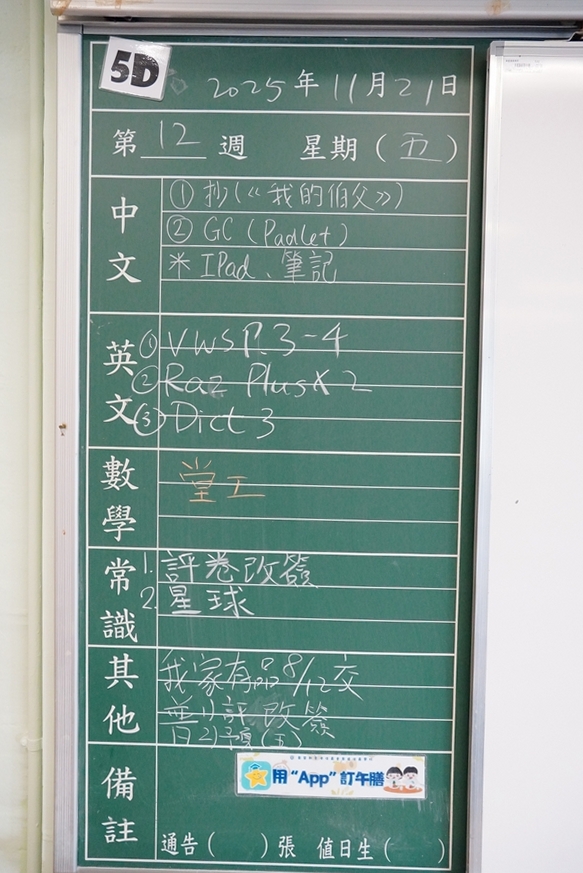 5D
2025年11月21日
第 12 週 星期(五)
中文
① 抄(《我的伯父》)
② GC (Padlet)
※ IPad、筆記
英文
① VWS P.3-4
② Raz Plus X 2
③ Dict 3
數學
堂工
常識
1. 評卷改簽
2. 星球
其他
我家有品8/12交
普1)評改簽
2)預(五)
備註
用“App”訂午膳
通告( )張 值日生( )